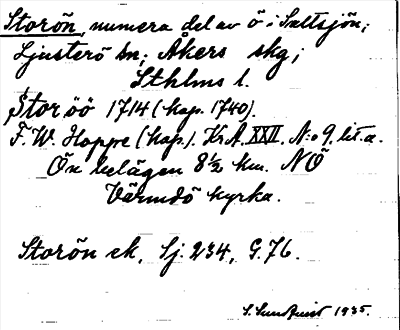 Storön, numera del av ö i Saltsjön;
Ljusterö sn; Åkers skg;
Sthlms l.
Storöö 1714 (kop. 1740).
F. W. Hoppe (kop.). Kr.A. XXII. N:o 9. lit. a.
Ön belägen 8½ km. NÖ
Värmdö kyrka.
Storön ek. Sj. 234, G. 76.
S. Sundqvist 1935.